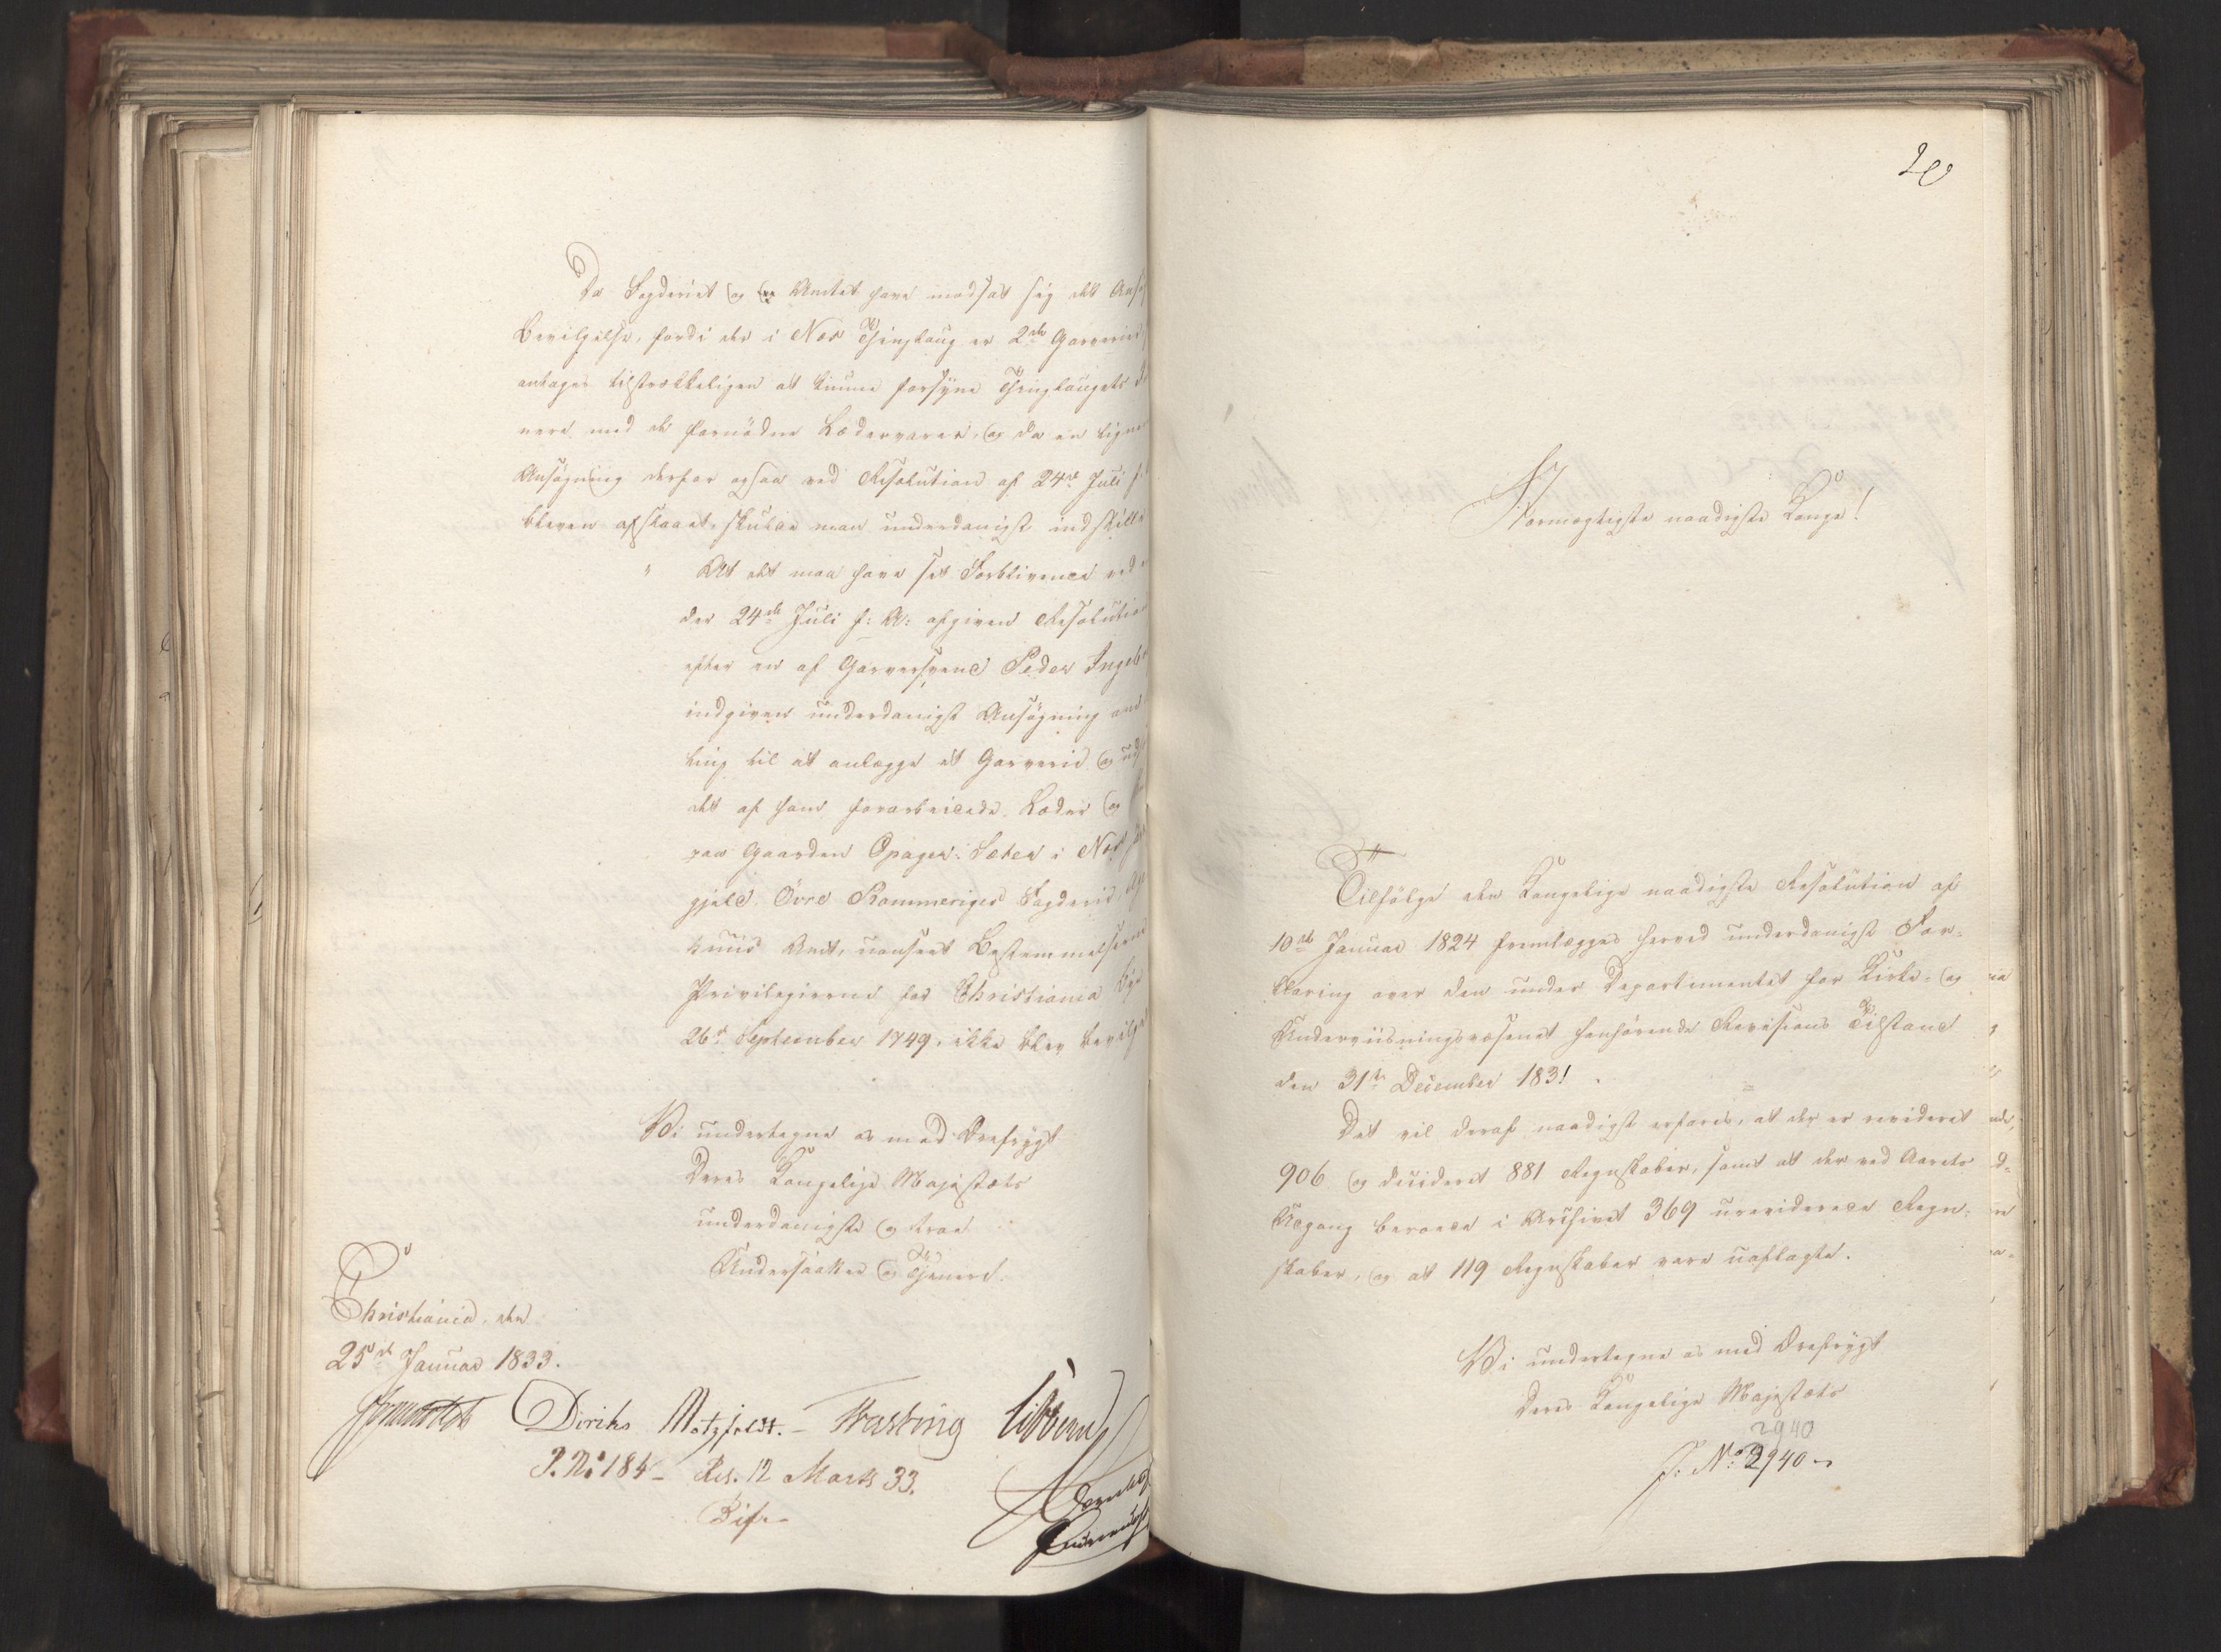 Da Fogderiet og Amtet have modsat sig det
Bevilgelse, fordi der i Næs Thinglaug er 2de Garverier
antages tilstrækkeligen at kunne forsyne Thinglaugets
nere med de fornödne Lædervarer, og da en
Ansögning derfor ogsaa ved Resolution af 24de Juli
bleven afslaaet, skulde man underdanigst indstille
" At det maa have sit Forblivende ved
der 24de Juli f: A: afgiven Resolution
efter en af Garversvend Peder
indgiven underdanigst Ansögning
ling til at anlægge et Garverie og
det af ham forarbeidede Læder og
paa Gaarden Opager-Sæter i Næs
gjeld Övre Rommeriges Fogderie
huus Amt, uanseet Bestemmelserne
Privilegierne for Christiania
26de September 1749, ikke blev
Vi undertegne os med Ærefrygt
Deres Kongelige Majestæts
underdanigste og troe
Undersaatter og Tjenere.
Christiania, den
25de Januar 1833.
Diriks Motzfeldt. Fasting Sibbern
J. No 184 - Res. 12 Marts 33.
Bif.
20
Stormægtigste naadigste Konge!
Tilfölge den Kongelige naadigste Resolution af
10de Januar 1824 fremlægges herved underdanigst For-
klaring over den under Departementet for Kirke- og
Underviisningsvæsenet henhörende Revisions Tilstand
den 31te December 1831.
Det vil deraf naadigst erfares, at der er revideret
906 og decideret 881 Regnskaber, samt at der ved Aarets
Udgang beroede i Archivet 369 ureviderede Regn-
skaber, og at 119 Regnskaber vare uaflagte.
Vi undertegne os med Ærefrygt
Deres Kongelige Majestæts
2940
J: No: 2940